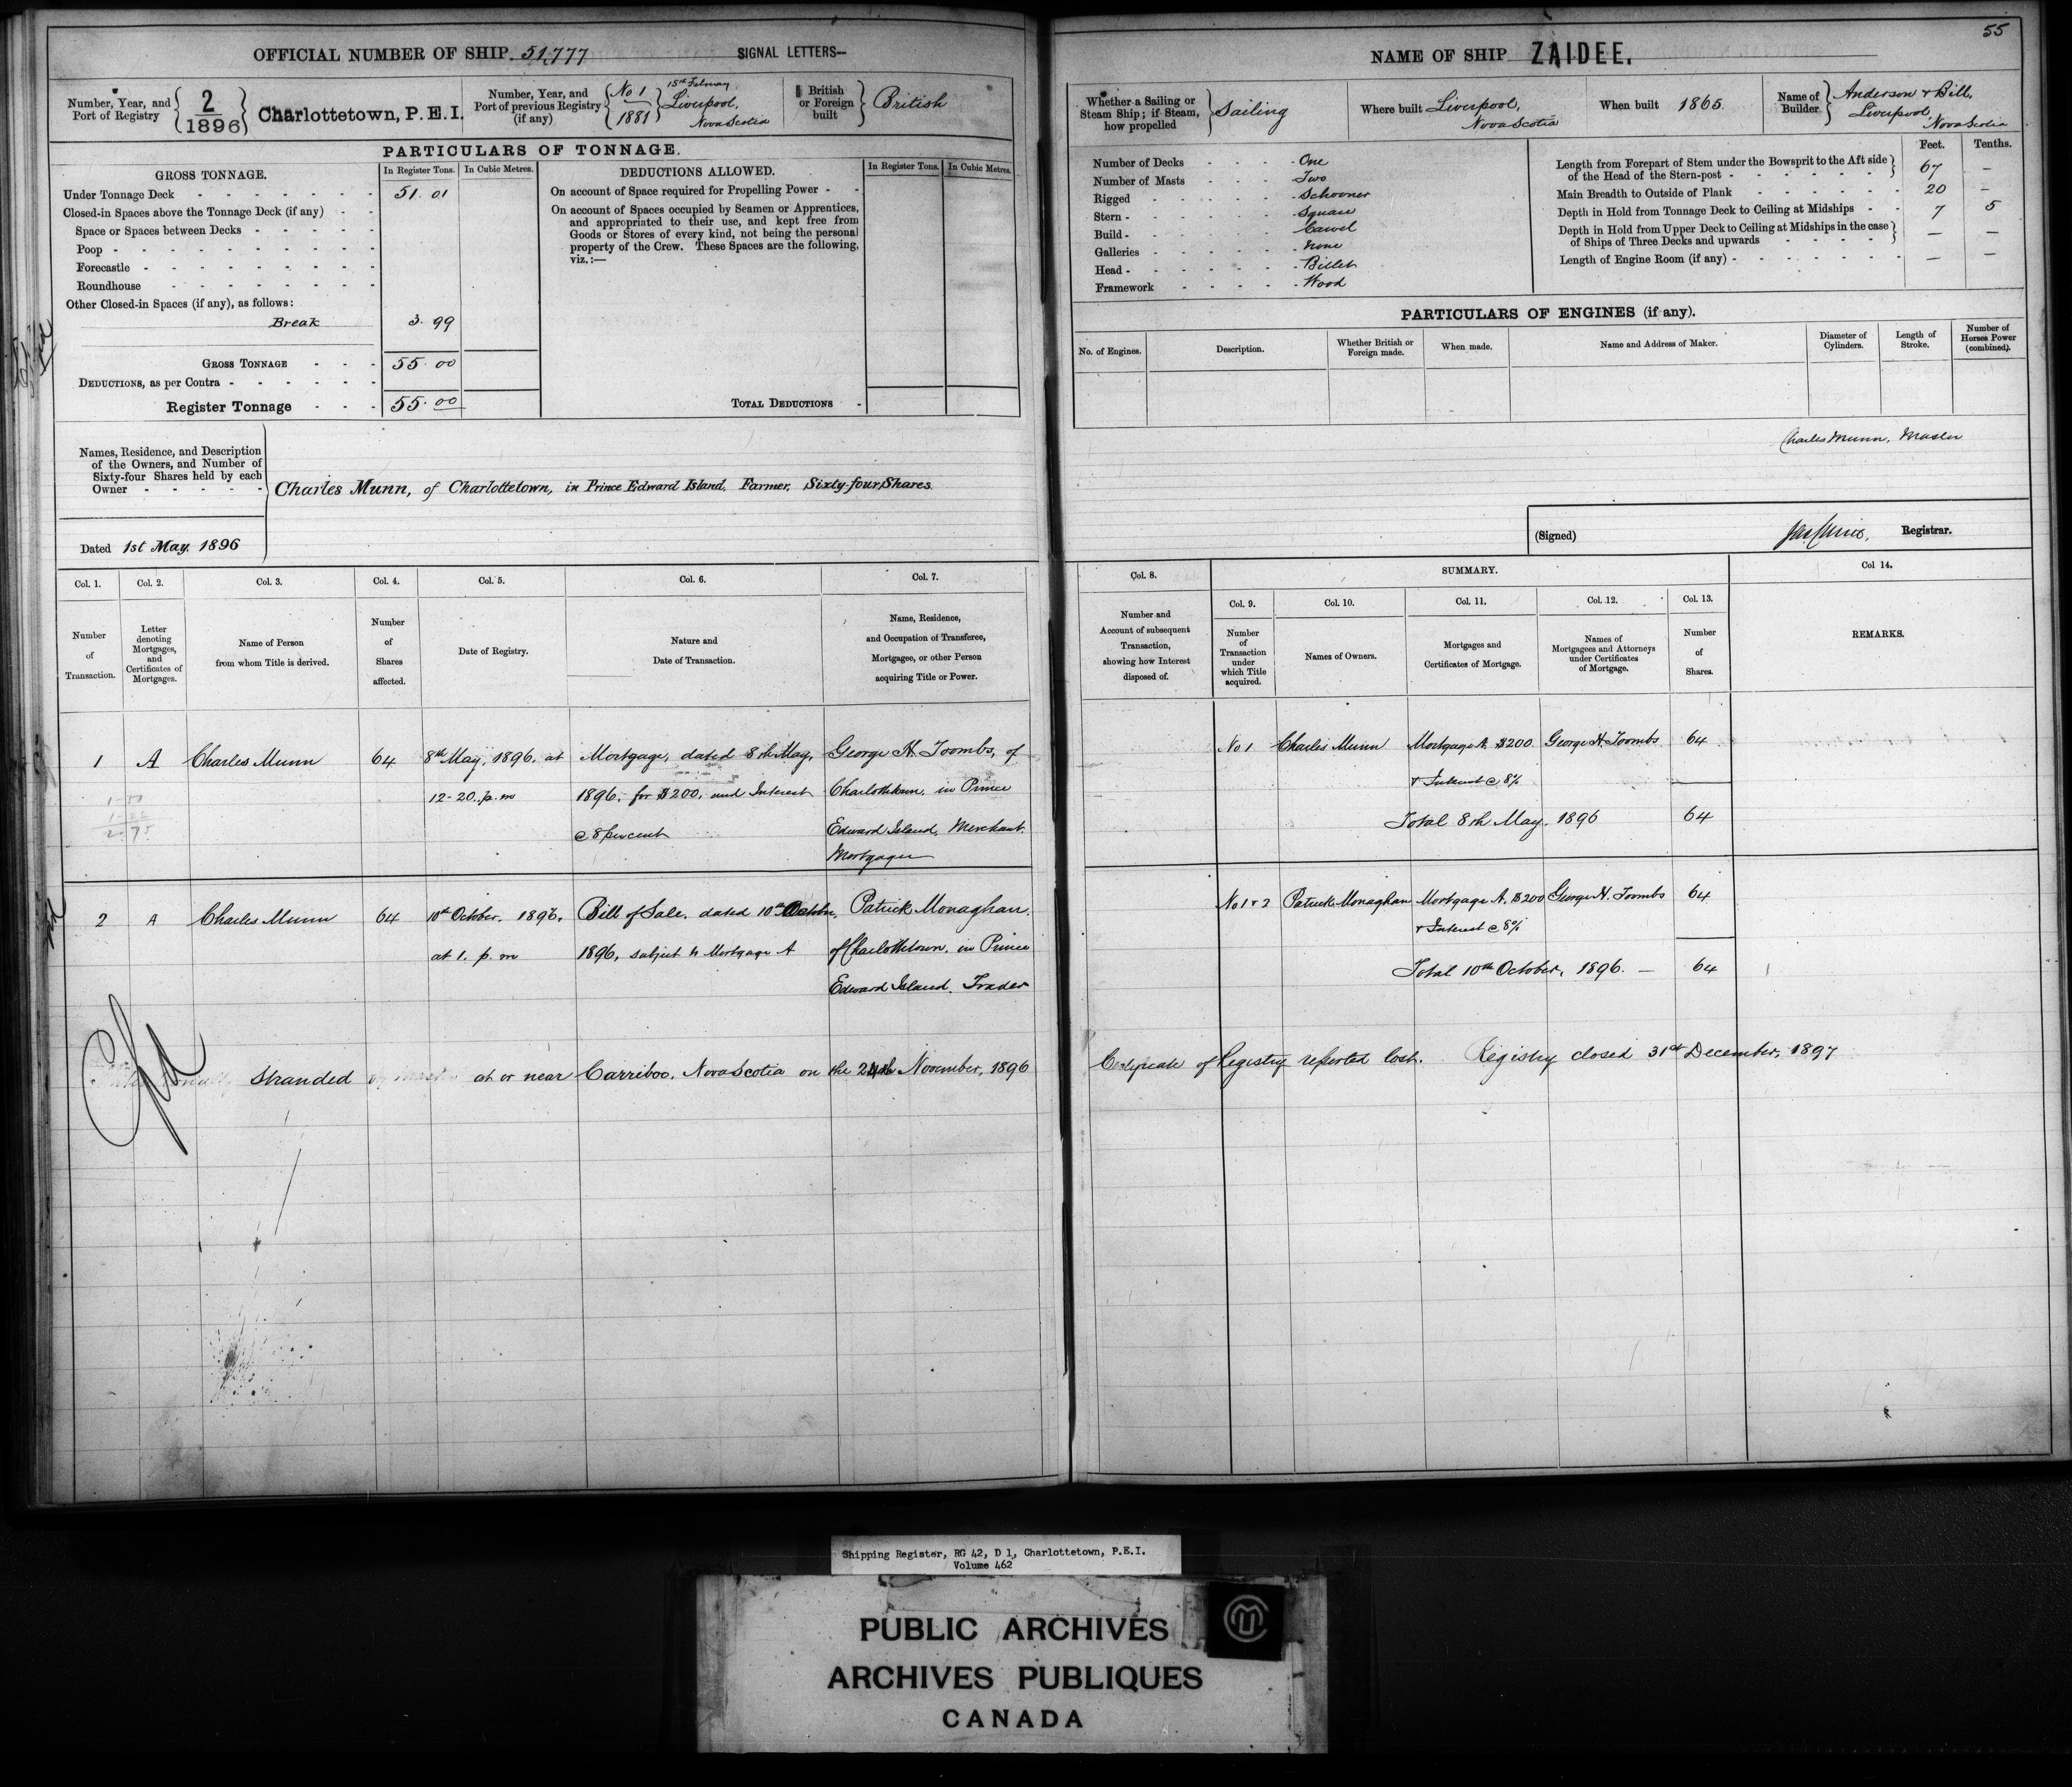 55
OFFICIAL NUMBER OF SHIP 51,777 SIGNAL LETTERS—
Number, Year, and Port of Registry
2
1896
Charlottetown, P.E.I.
Number, Year, and Port of previous Registry (if any)
No 1
1881
15th
Liverpool,
Nova Scotia
British or Foreign built
British
PARTICULARS OF TONNAGE.
GROSS TONNAGE. In Register Tons. In Cubic Metres.
Under Tonnage Deck 51.01
Closed-in Spaces above the Tonnage Deck (if any)
Space or Spaces between Decks
Poop
Forecastle
Roundhouse
Other Closed-in Spaces (if any), as follows:
Break 3.99
GROSS TONNAGE 55.00
DEDUCTIONS, as per Contra
Register Tonnage 55.00
DEDUCTIONS ALLOWED. In Register Tons. In Cubic Metres.
On account of Space required for Propelling Power
On account of Spaces occupied by Seamen or Apprentices,
and appropriated to their use, and kept free from
Goods or Stores of every kind, not being the personal
property of the Crew. These Spaces are the following,
viz.:—
TOTAL DEDUCTIONS
Names, Residence, and Description
of the Owners, and Number of
Sixty-four Shares held by each
Owner
Charles Munn, of Charlottetown, in Prince Edward Island, Farmer, Sixty-four Shares.
Dated 1st May, 1896
Col. 1. Col. 2. Col. 3. Col. 4. Col. 5. Col. 6. Col. 7.
Number of Transaction.
Letter denoting Mortgages, and Certificates of Mortgages.
Name of Person from whom Title is derived.
Number of Shares affected.
Date of Registry.
Nature and Date of Transaction.
Name, Residence, and Occupation of Transferee, Mortgagee, or other Person acquiring Title or Power.
1 A Charles Munn 64 8th May, 1896, at Mortgage, dated 8th May, George H. Toombs, of
12-20 p.m 1896, for $200, and Interest Charlottetown, in Prince
@ 8 per cent Edward Island, Merchant.
Mortgagee
2 A Charles Munn 64 10th October, 1896, Bill of Sale, dated 10th October, Patrick Monaghan,
at 1. p.m 1896, subject to Mortgage A of Charlottetown, in Prince
Edward Island, Trader
Stranded at or near Carriboo, Nova Scotia on the 24th November, 1896
NAME OF SHIP ZAIDEE.
Whether a Sailing or Steam Ship; if Steam, how propelled
Sailing
Where built Liverpool,
Nova Scotia
When built 1865.
Name of Builder
Anderson & Bill,
Liverpool,
Nova Scotia
Number of Decks One
Number of Masts Two
Rigged Schooner
Stern Square
Build Carvel
Galleries None
Head Billet
Framework Wood
Feet. Tenths.
Length from Forepart of Stem under the Bowsprit to the Aft side
of the Head of the Stern-post 67 —
Main Breadth to Outside of Plank 20 —
Depth in Hold from Tonnage Deck to Ceiling at Midships 7 5
Depth in Hold from Upper Deck to Ceiling at Midships in the case
of Ships of Three Decks and upwards — —
Length of Engine Room (if any) — —
PARTICULARS OF ENGINES (if any).
No. of Engines. Description. Whether British or Foreign made. When made. Name and Address of Maker. Diameter of Cylinders. Length of Stroke. Number of Horses Power (combined).
Charles Munn, Master
(Signed) Registrar.
Col. 8. SUMMARY. Col 14.
Col. 9. Col. 10. Col. 11. Col. 12. Col. 13.
Number and Account of subsequent Transaction, showing how Interest disposed of.
Number of Transaction under which Title acquired.
Names of Owners.
Mortgages and Certificates of Mortgage.
Names of Mortgagees and Attorneys under Certificates of Mortgage.
Number of Shares.
REMARKS.
No 1 Charles Munn Mortgage A $200 George H. Toombs 64
& Interest @ 8%
Total 8th May, 1896 64
No 1 & 2 Patrick Monaghan Mortgage A. $200 George H. Toombs 64
& Interest @ 8%
Total 10th October, 1896. — 64
Certificate of Registry reported lost. Registry closed 31st December, 1897
Shipping Register, RG 42, D 1, Charlottetown, P.E.I.
Volume 462
PUBLIC ARCHIVES
ARCHIVES PUBLIQUES
CANADA